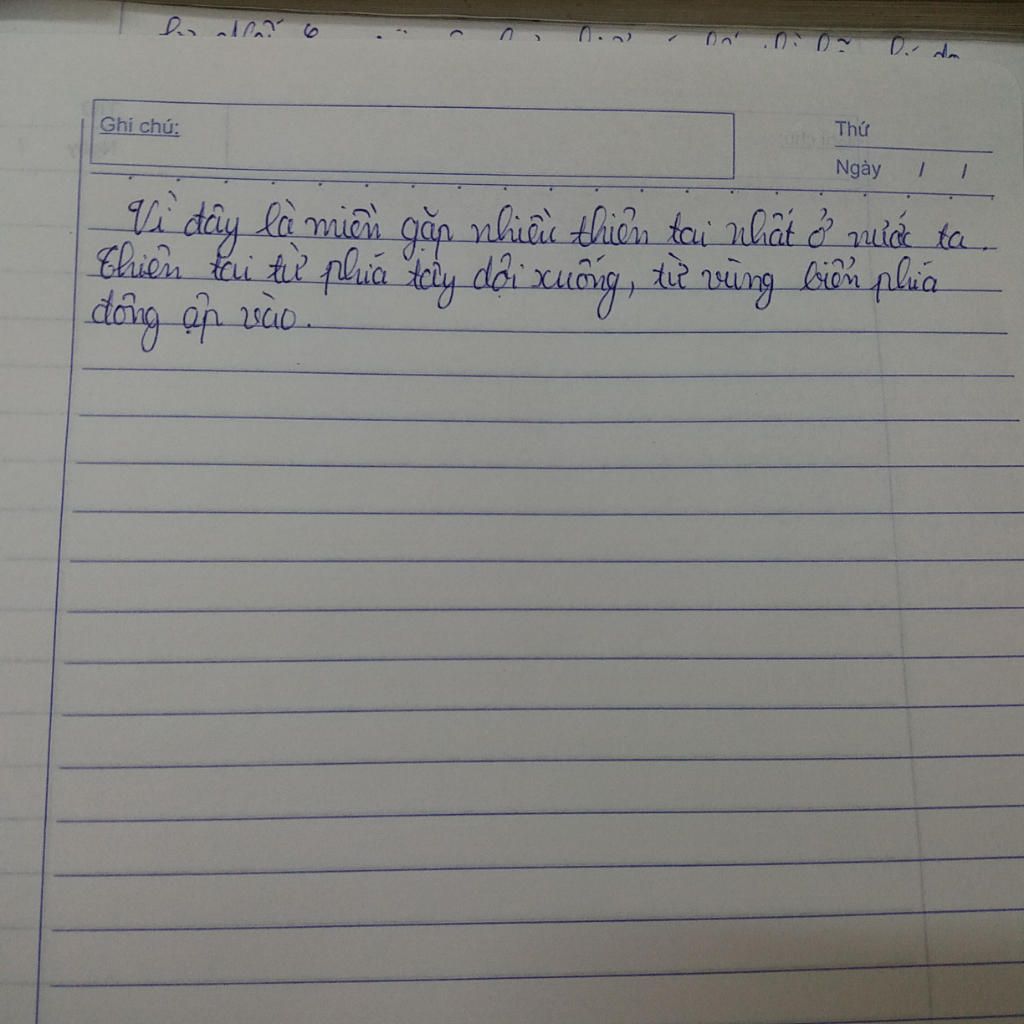 Ghi chú:
Thứ
Ngày / /
Vì đây là miền gặp nhiều thiên tai nhất ở nước ta.
Thiên tai từ phía tây dội xuống, từ vùng biển phía
đông ập vào.